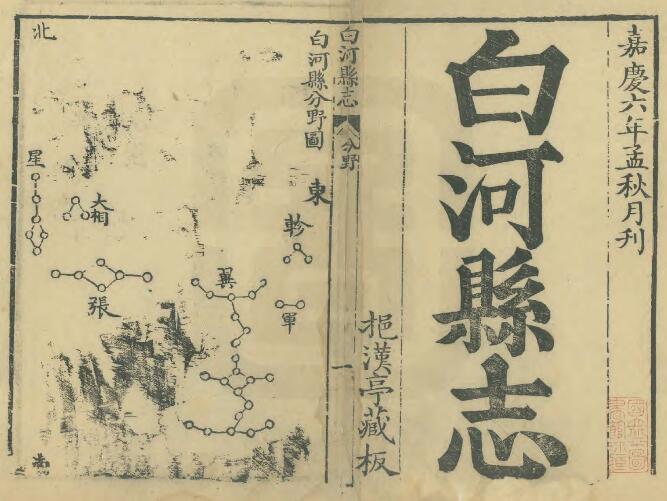 嘉慶六年孟秋月刊
白河縣志
挹漢亭藏板
白河縣志
分野
一
白河縣分野圖
東
軫
軍
翼
張
星
北
南